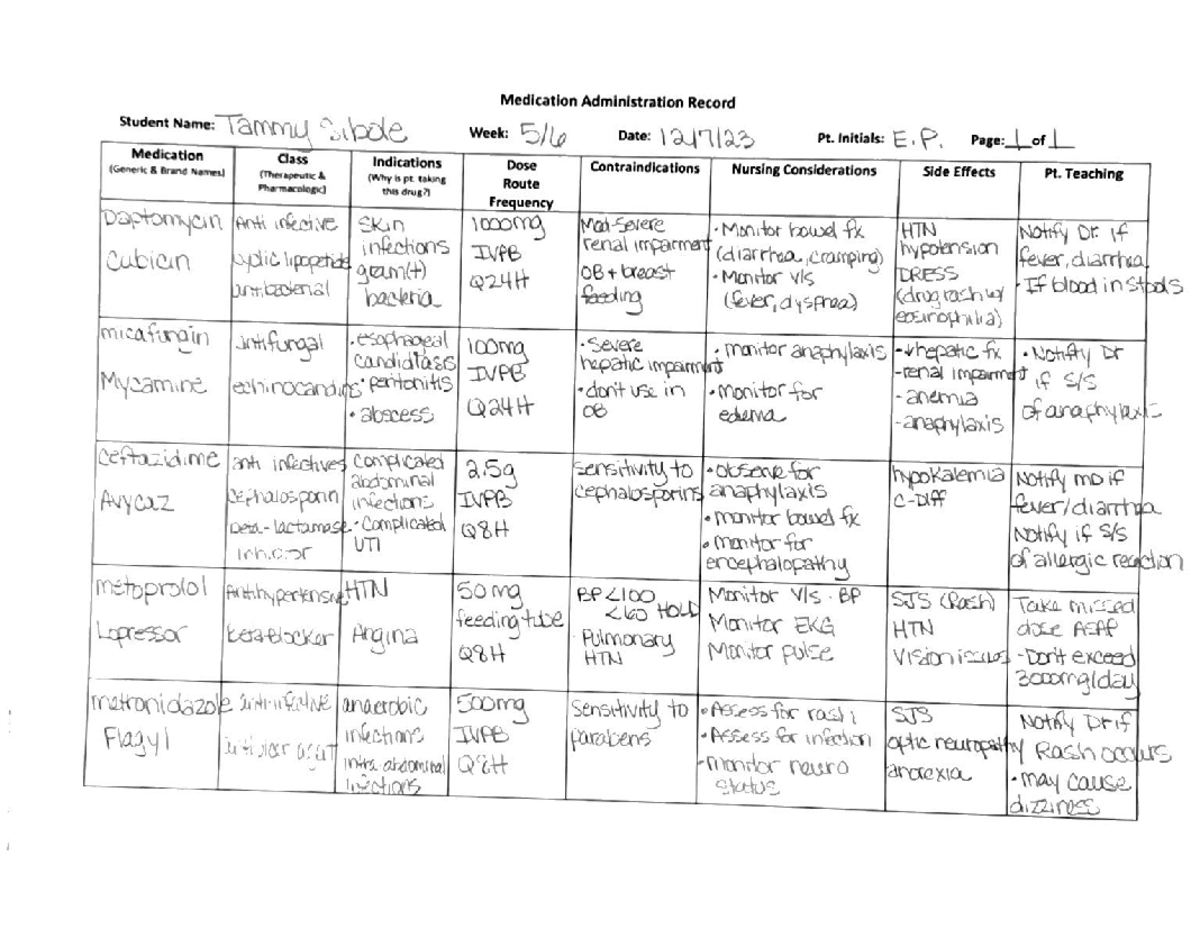 Medication Administration Record
Student Name: Tammy Sibole Week: 5/6 Date: 12/7/23 Pt. Initials: E.P. Page: 1 of 1
Medication
(Generic & Brand Names)
Class
(Therapeutic &
Pharmacologic)
Indications
(Why is pt. taking
this drug?)
Dose
Route
Frequency
Contraindications
Nursing Considerations
Side Effects
Pt. Teaching
Daptomycin
Cubicin
Anti infective
cyclic lipopeptide
antibacterial
Skin
infections
gram(+)
bacteria
1000mg
IVPB
Q24H
Mod-Severe
renal impairment
OB + breast
feeding
• Monitor bowel fx
(diarrhea, cramping)
• Monitor v/s
(fever, dyspnea)
HTN
hypotension
DRESS
(drug rash w/
eosinophilia)
Notify Dr. if
fever, diarrhea
• If blood in stools
micafungin
Mycamine
antifungal
echinocandins
• esophageal
candidiasis
• peritonitis
• abscess
100mg
IVPB
Q24H
• Severe
hepatic impairment
• don't use in
OB
• monitor anaphylaxis
• monitor for
edema
-↓hepatic fx
-renal impairment
- anemia
-anaphylaxis
• Notify Dr
if S/S
of anaphylaxis
Ceftazidime
Avycaz
anti infectives
cephalosporin
beta-lactamase
inhibitor
Complicated
abdominal
infections
• Complicated
UTI
2.5g
IVPB
Q8H
sensitivity to
cephalosporins
• observe for
anaphylaxis
• monitor bowel fx
• monitor for
encephalopathy
hypokalemia
C-Diff
Notify MD if
fever/diarrhea
Notify if S/S
of allergic reaction
metoprolol
Lopressor
Antihypertensive
beta-blocker
HTN
Angina
50mg
feeding tube
Q8H
BP <100
<60 HOLD
• Pulmonary
HTN
Monitor V/S • BP
Monitor EKG
Monitor pulse
SJS (Rash)
HTN
Vision issues
Take missed
dose ASAP
-Don't exceed
3000mg/day
metronidazole
Flagyl
anti-infective
anaerobic
infections
intra abdominal
infections
500mg
IVPB
Q8H
Sensitivity to
parabens
• Assess for rash
• Assess for infection
-monitor neuro
status
SJS
optic neuropathy
anorexia
Notify Dr if
Rash occurs
• may cause
dizziness